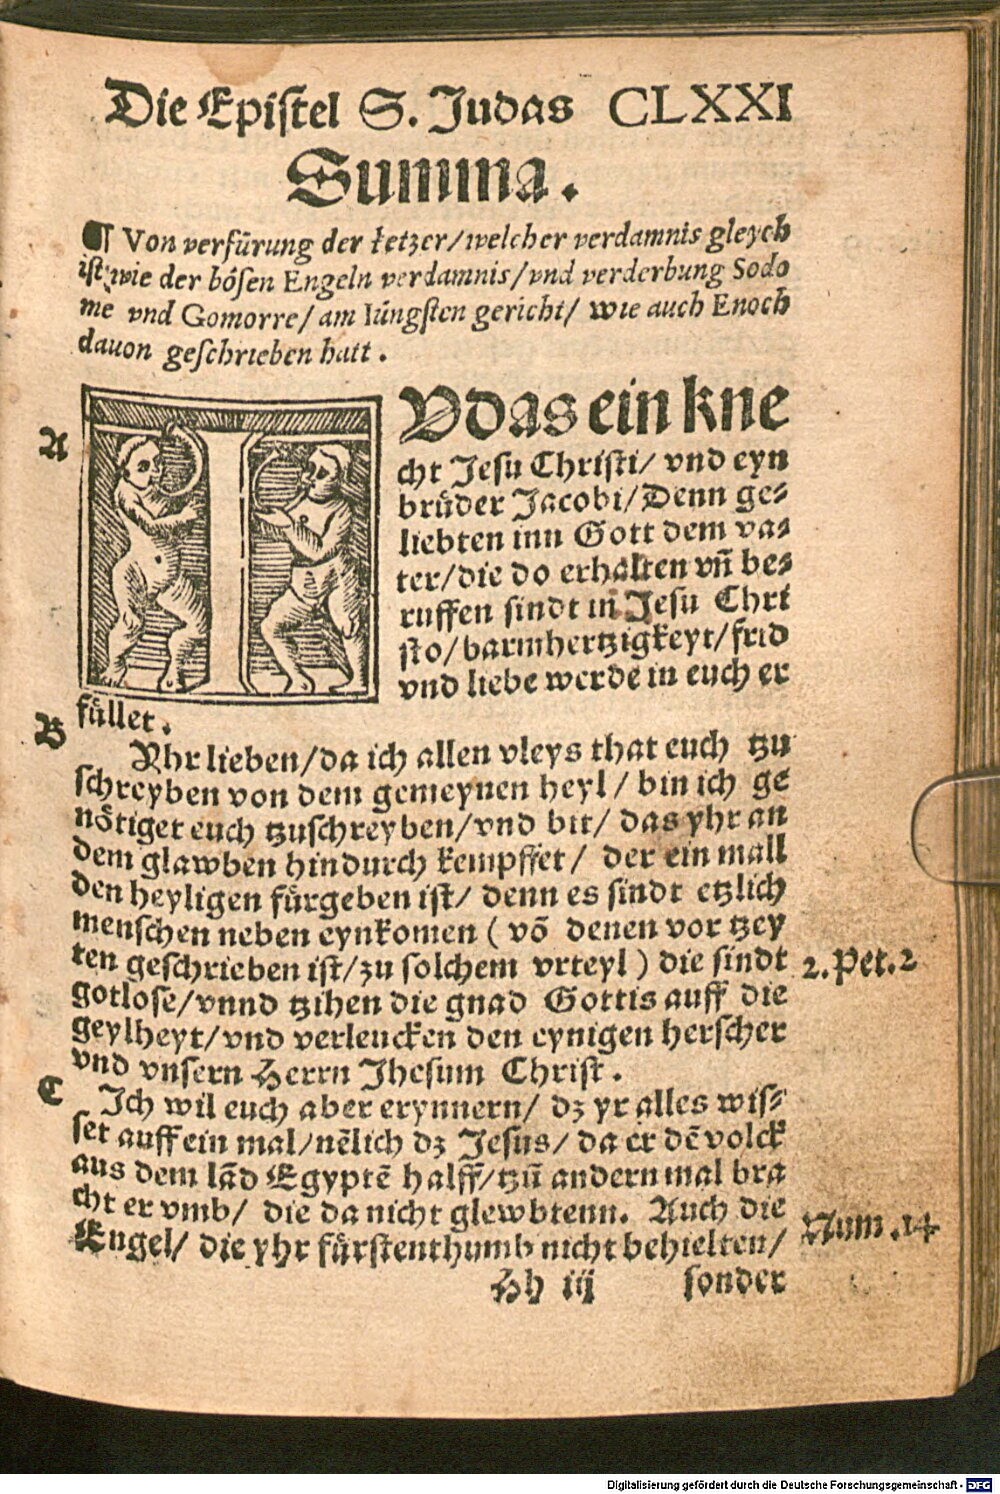 Die Epistel S. Judas CLXXI
Summa.
¶ Von verfürung der ketzer/welcher verdamnis gleych
ist/wie der bösen Engeln verdamnis/vnd verderbung Sodo
me vnd Gomorre/am Jüngsten gericht/ wie auch Enoch
dauon geschrieben hatt.
A
IVdas ein kne
cht Jesu Christi/ vnd eyn
brüder Jacobi/Denn ge⸗
liebten inn Gott dem va⸗
ter/die do erhalten vñ be⸗
ruffen sindt in Jesu Chri
sto/barmhertzigkeyt/frid
vnd liebe werde in euch er
füllet.
B
Yhr lieben/da ich allen vleys that euch tzu
schreyben von dem gemeynen heyl/ bin ich ge
nötiget euch tzuschreyben/vnd bit/ das yhr an
dem glawben hindurch kempffet/ der ein mall
den heyligen fürgeben ist/ denn es sindt etzlich
menschen neben eynkomen ( võ denen vor tzey
ten geschrieben ist/zu solchem vrteyl ) die sindt 2.Pet.2
gotlose/vnnd tzihen die gnad Gottis auff die
geylheyt/vnd verleucken den eynigen herscher
vnd vnsern Herrn Jhesum Christ.
C
Ich wil euch aber erynnern/ dz yr alles wis⸗
set auff ein mal/nẽlich dz Jesus/ da er dẽ volck
aus dem lãd Egyptẽ halff/tzũ andern mal bra
cht er vmb/ die da nicht glewbtenn. Auch die
Engel/ die yhr fürstenthumb nicht behielten/ Num.14
Hh iij sonder
Digitalisierung gefördert durch die Deutsche Forschungsgemeinschaft - DFG